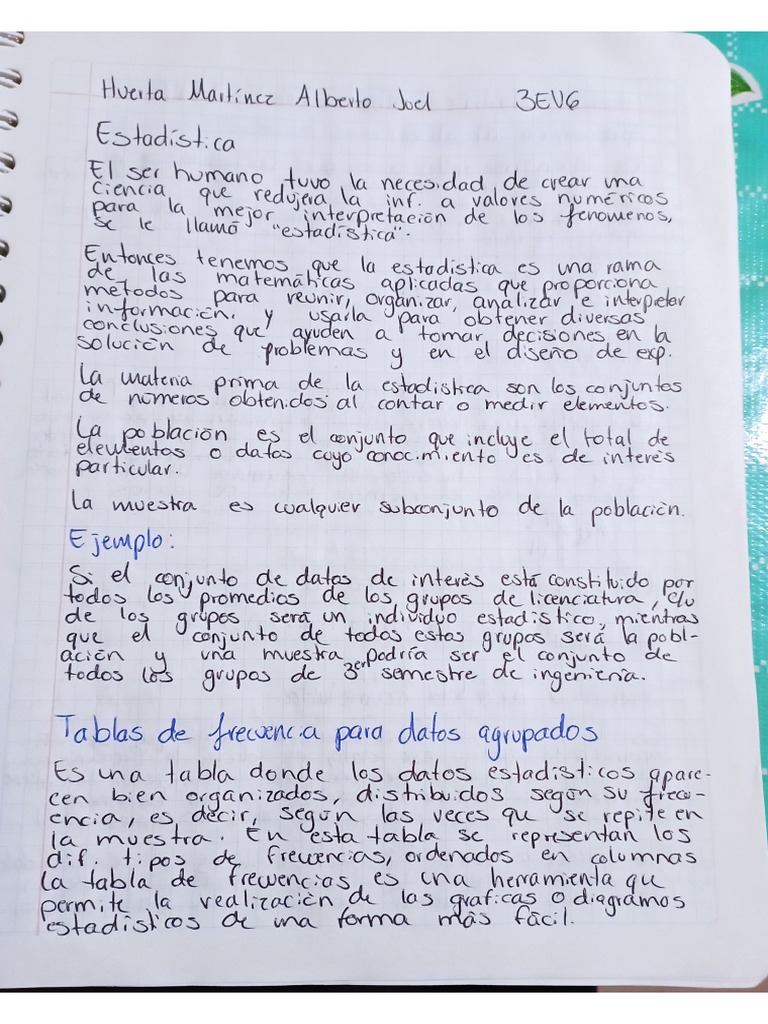 Huerta Martínez Alberto Joel 3EV6
Estadística
El ser humano tuvo la necesidad de crear una
ciencia que redujera la inf. a valores numéricos
para la mejor interpretación de los fenomenos,
se le llamó "estadística".
Entonces tenemos que la estadística es una rama
de las matemáticas aplicadas que proporciona
métodos para reunir, organizar, analizar e interpretar
información, y usarla para obtener diversas
conclusiones que ayuden a tomar decisiones en la
solución de problemas y en el diseño de exp.
La materia prima de la estadistica son los conjuntos
de números obtenidos al contar o medir elementos.
La población es el conjunto que incluye el total de
elementos o datos cuyo conocimiento es de interés
particular.
La muestra es cualquier subconjunto de la población.
Ejemplo:
Si el conjunto de datos de interés está constituido por
todos los promedios de los grupos de licenciatura, c/u
de los grupos será un individuo estadístico, mientras
que el conjunto de todos estos grupos será la pobl-
ación y una muestra podría ser el conjunto de
todos los grupos de 3er semestre de ingeniería.
Tablas de frecuencia para datos agrupados
Es una tabla donde los datos estadísticos apare-
cen bien organizados, distribuidos según su frecu-
encia, es decir, según las veces que se repite en
la muestra. En esta tabla se representan los
dif. tipos de frecuencias, ordenados en columnas
la tabla de frecuencias es una herramienta que
permite la realización de las graficas o diagramas
estadísticos de una forma más fácil.